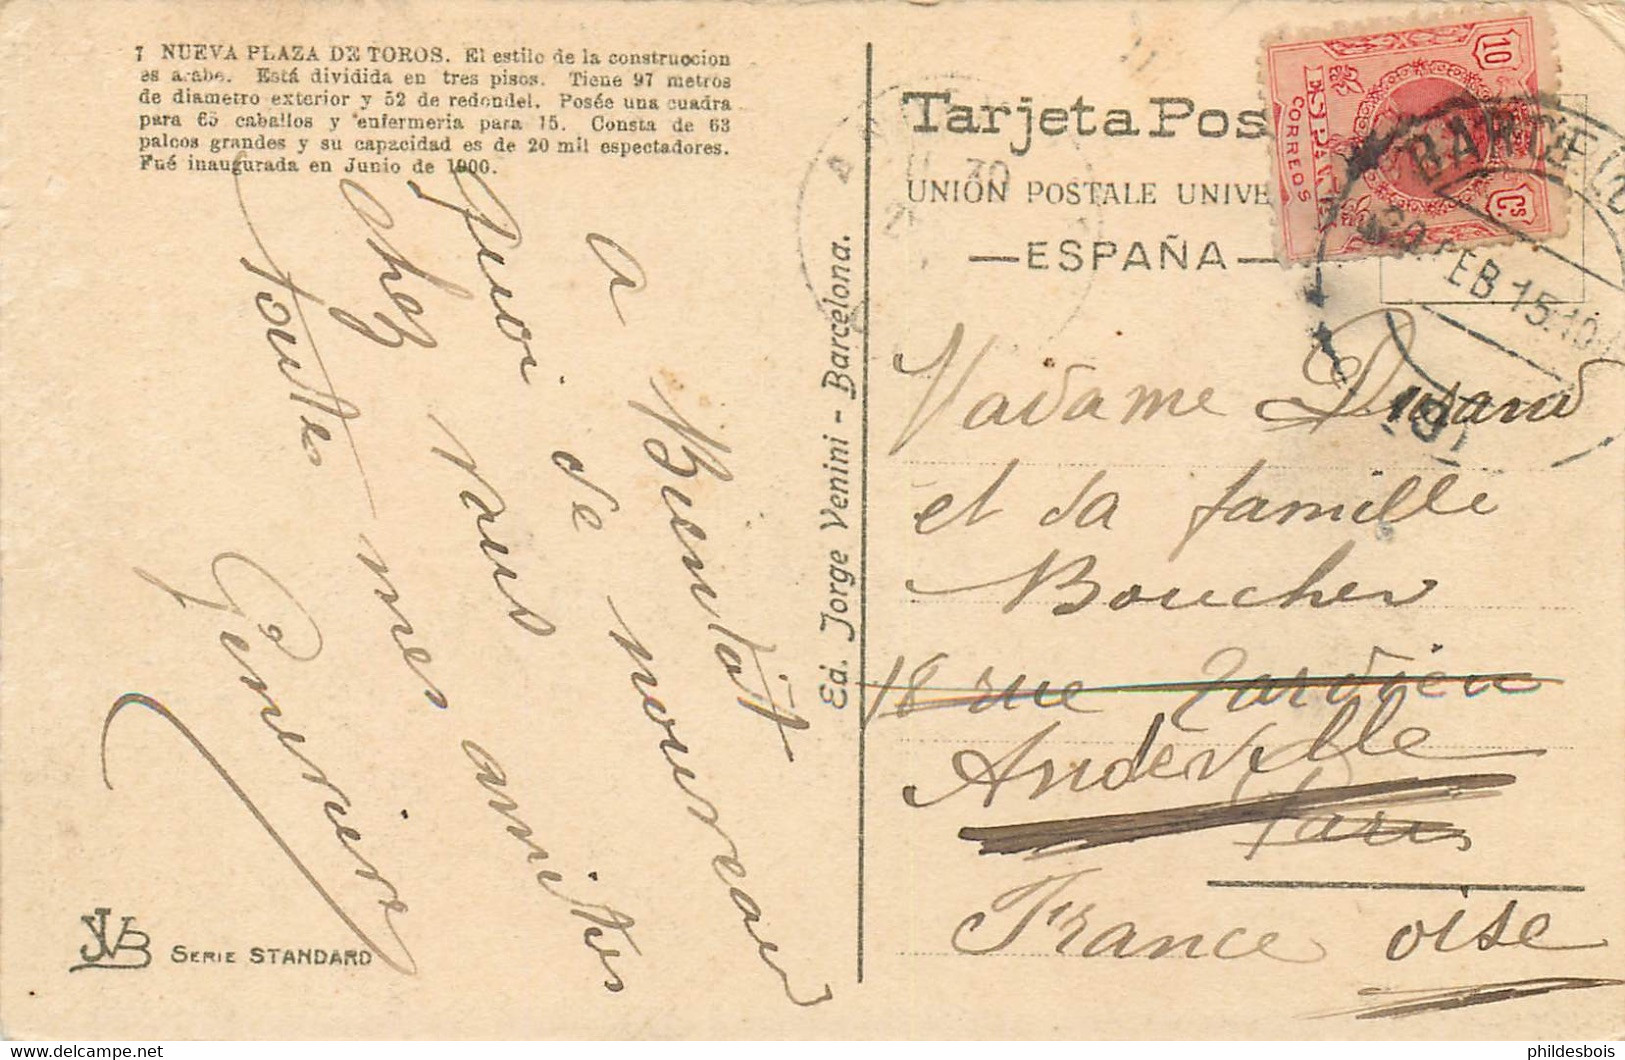 7 NUEVA PLAZA DE TOROS. El estilo de la construccion
es arabe. Está dividida en tres pisos. Tiene 97 metros
de diametro exterior y 52 de redondel. Posée una cuadra
para 65 caballos y enfermeria para 15. Consta de 63
palcos grandes y su capacidad es de 20 mil espectadores.
Fué inaugurada en Junio de 1900.
a Bientôt
Quoi de nouveau
chez vous
toutes mes amitiés
Génévieve
JVB SERIE STANDARD
Ed. Jorge Venini - Barcelona.
Tarjeta Pos
UNIÓN POSTALE UNIVE
—ESPAÑA—
10 Cs
ESPAÑA
CORREOS
BARCELO
FEB 15 10
Madame Durand
et sa famille
Boucher
18 rue
Andeville
Paris
France oise
phildesbois